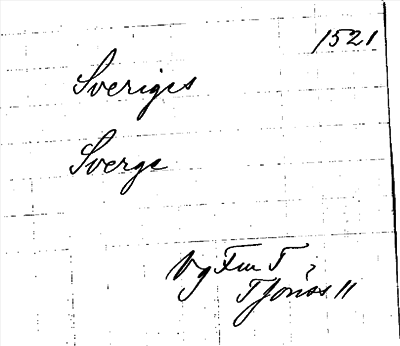 1521
Sveriges
Sverge
Vg Fm T,
T Jonss 11